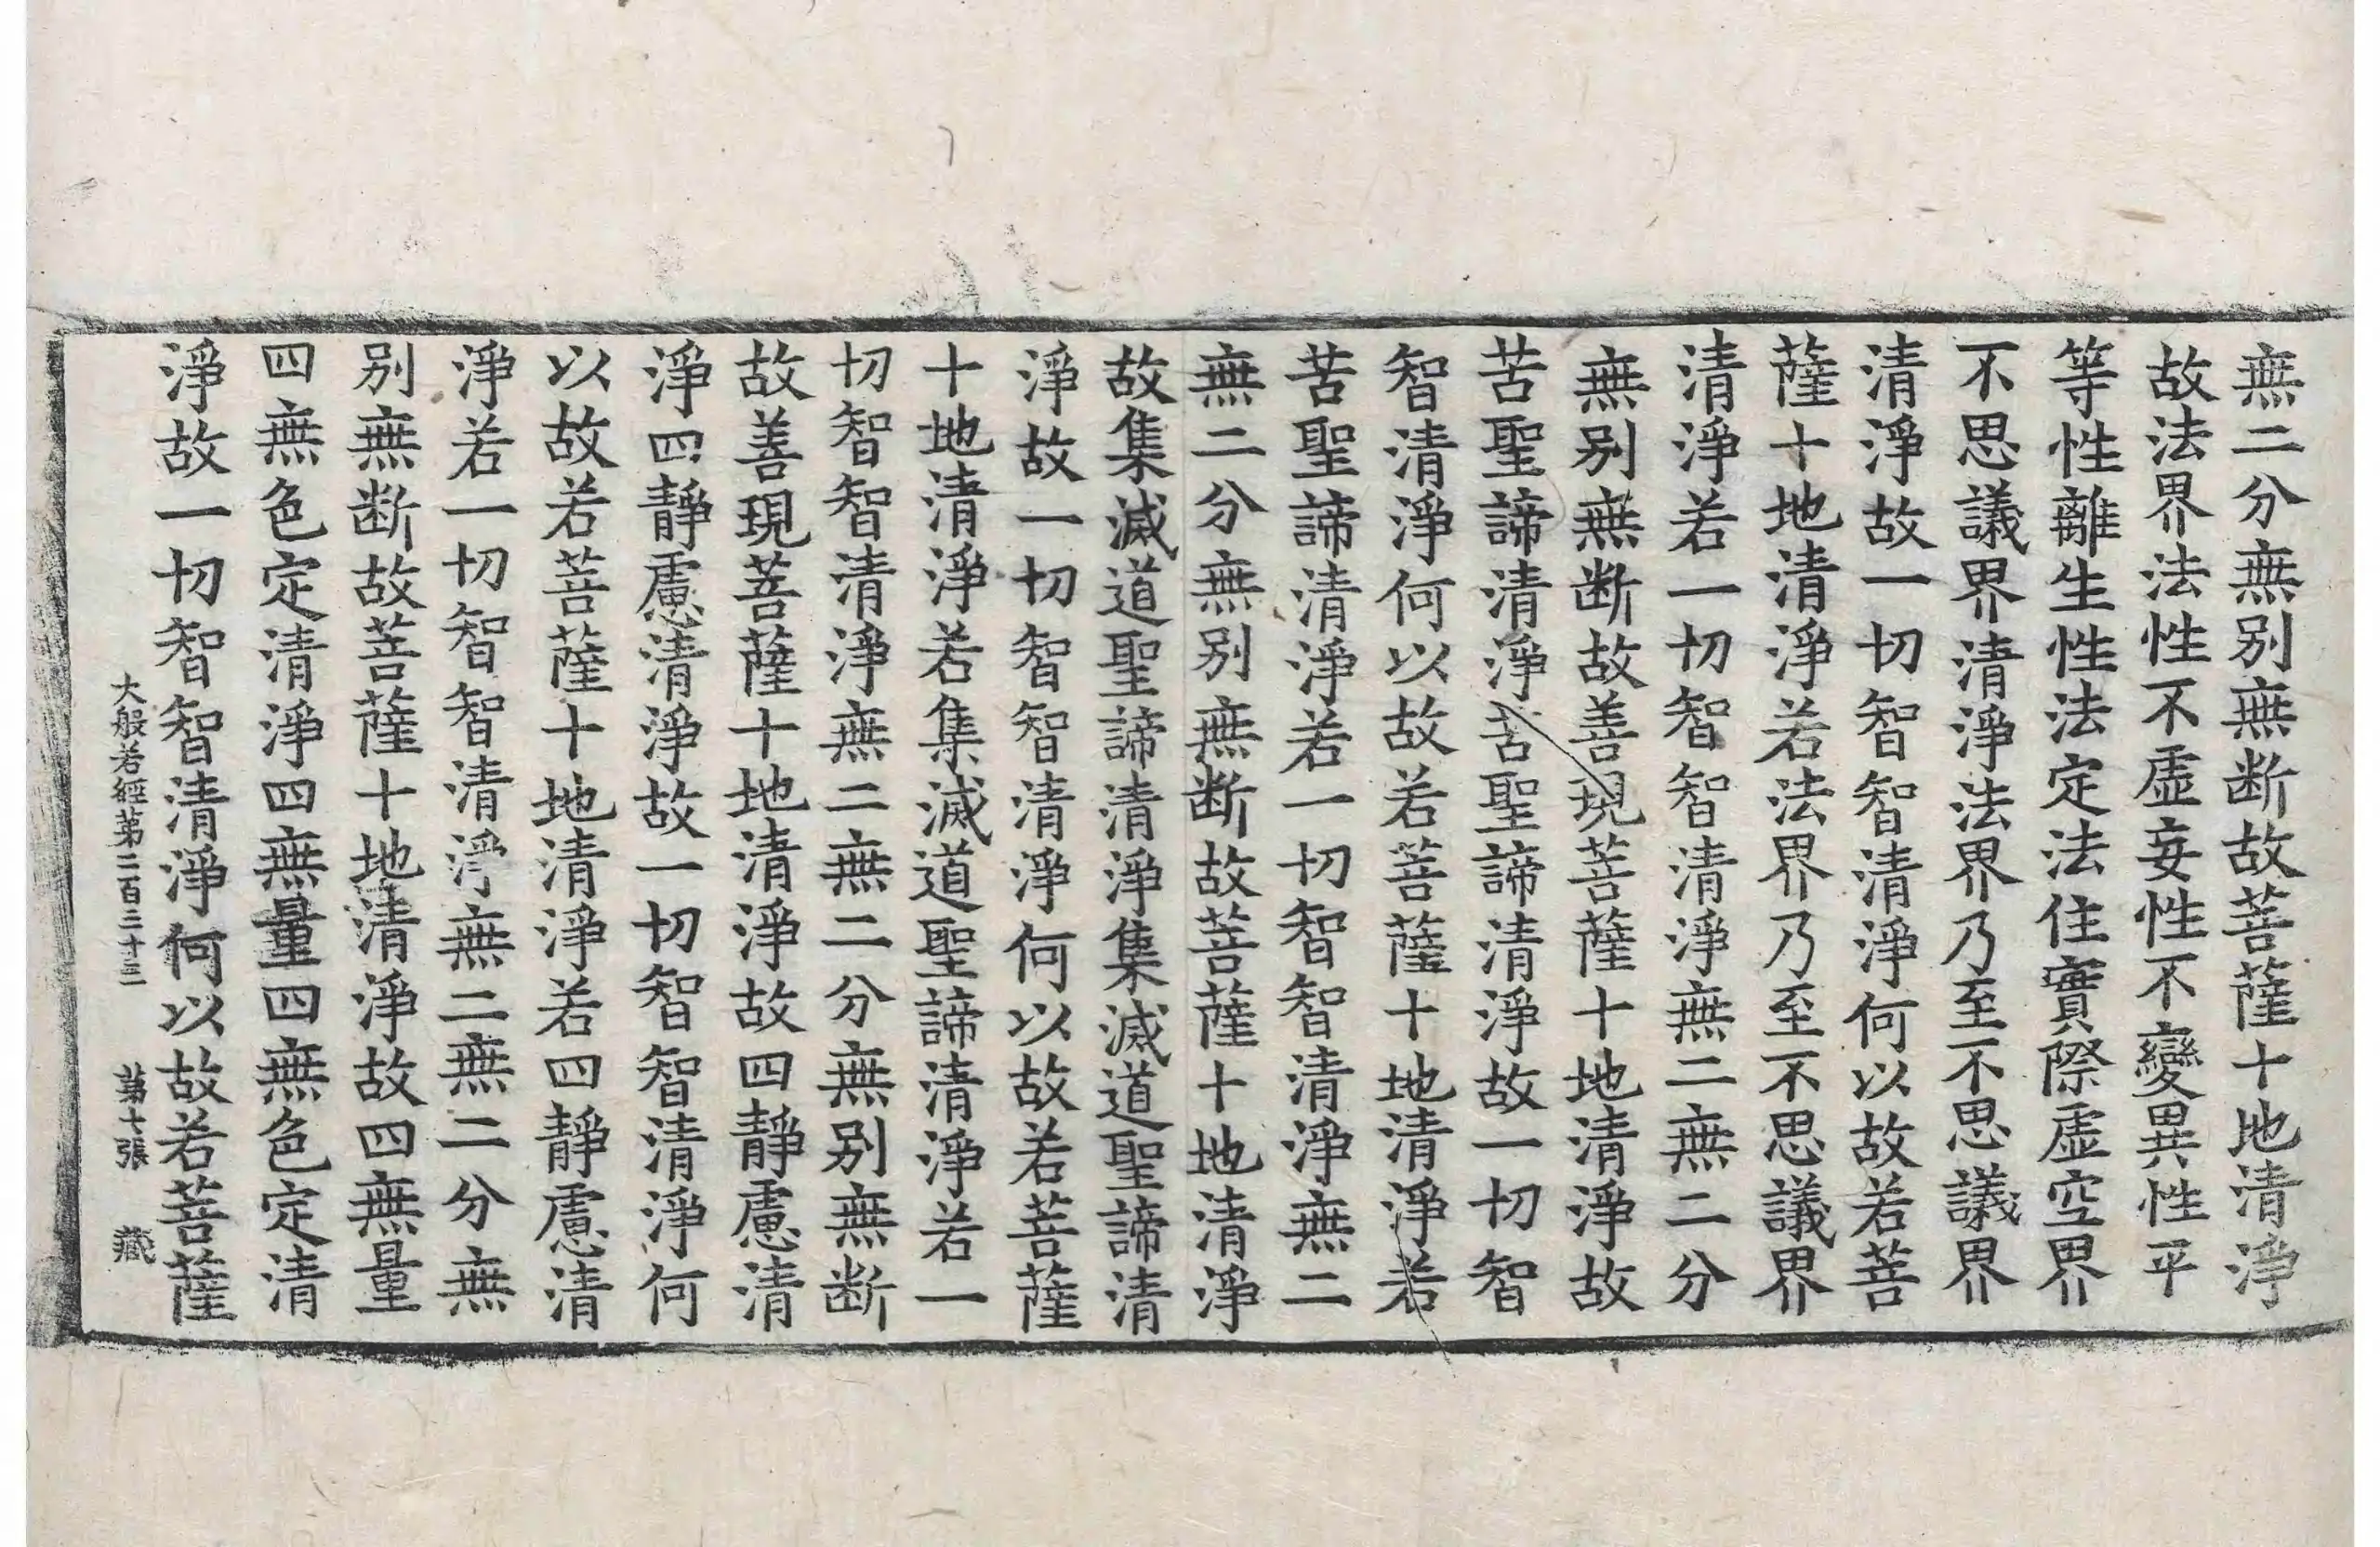 無二分無別無断故菩薩十地清淨
故法界法性不虛妄性不變異性平
等性離生性法定法住實際虛空界
不思議界清淨法界乃至不思議界
清淨故一切智智清淨何以故若菩
薩十地清淨若法界乃至不思議界
清淨若一切智智清淨無二無二分
無別無断故善現菩薩十地清淨故
苦聖諦清淨苦聖諦清淨故一切智
智清淨何以故若菩薩十地清淨若
苦聖諦清淨若一切智智清淨無二
無二分無別無断故菩薩十地清淨
故集滅道聖諦清淨集滅道聖諦清
淨故一切智智清淨何以故若菩薩
十地清淨若集滅道聖諦清淨若一
切智智清淨無二無二分無別無断
故善現菩薩十地清淨故四靜慮清
淨四靜慮清淨故一切智智清淨何
以故若菩薩十地清淨若四靜慮清
淨若一切智智清淨無二無二分無
別無断故菩薩十地清淨故四無量
四無色定清淨四無量四無色定清
淨故一切智智清淨何以故若菩薩
大般若經第二百三十三 第七張 藏